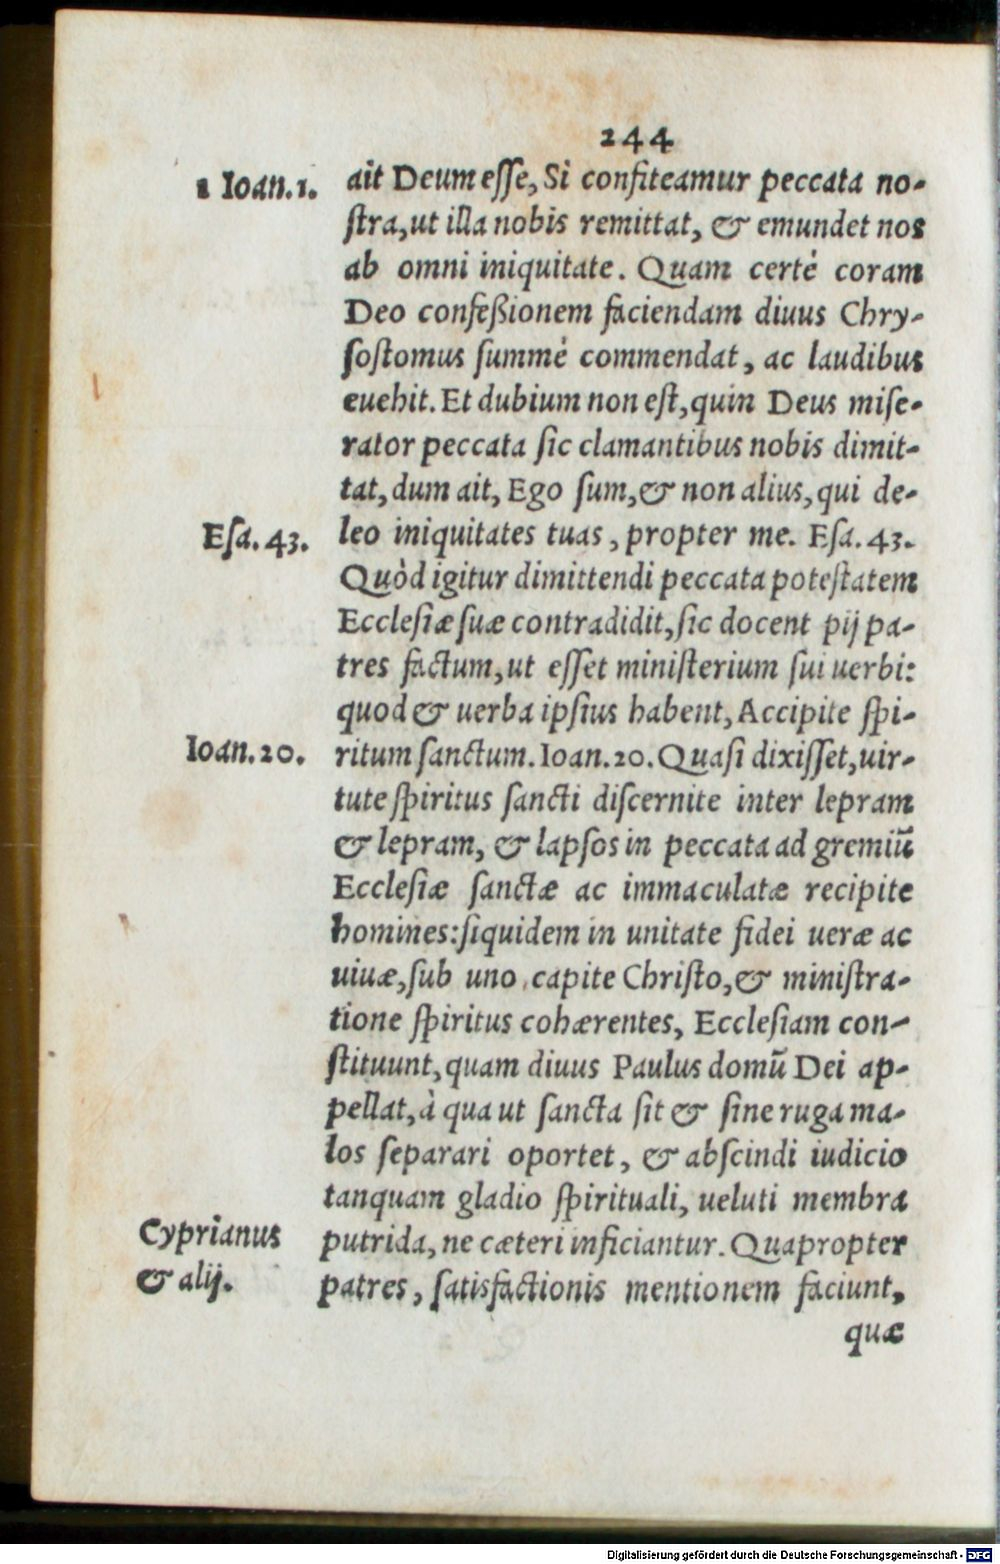 244
1 Ioan.1.
ait Deum esse, Si confiteamur peccata no-
stra, ut illa nobis remittat, & emundet nos
ab omni iniquitate. Quam certè coram
Deo confeßionem faciendam diuus Chry-
sostomus summè commendat, ac laudibus
euehit. Et dubium non est, quin Deus mise-
rator peccata sic clamantibus nobis dimit-
tat, dum ait, Ego sum, & non alius, qui de-
Esa. 43.
leo iniquitates tuas, propter me. Esa. 43.
Quòd igitur dimittendi peccata potestatem
Ecclesiæ suæ contradidit, sic docent pij pa-
tres factum, ut esset ministerium sui uerbi:
quod & uerba ipsius habent, Accipite spi-
Ioan. 20.
ritum sanctum. Ioan. 20. Quasi dixisset, uir-
tute spiritus sancti discernite inter lepram
& lepram, & lapsos in peccata ad gremiū
Ecclesiæ sanctæ ac immaculatæ recipite
homines: siquidem in unitate fidei ueræ ac
uiuæ, sub uno capite Christo, & ministra-
tione spiritus cohærentes, Ecclesiam con-
stituunt, quam diuus Paulus domū Dei ap-
pellat, à qua ut sancta sit & sine ruga ma-
los separari oportet, & abscindi iudicio
tanquam gladio spirituali, ueluti membra
Cyprianus
putrida, ne cæteri inficiantur. Quapropter
& alij.
patres, satisfactionis mentionem faciunt,
quæ
Digitalisierung gefördert durch die Deutsche Forschungsgemeinschaft - DFG